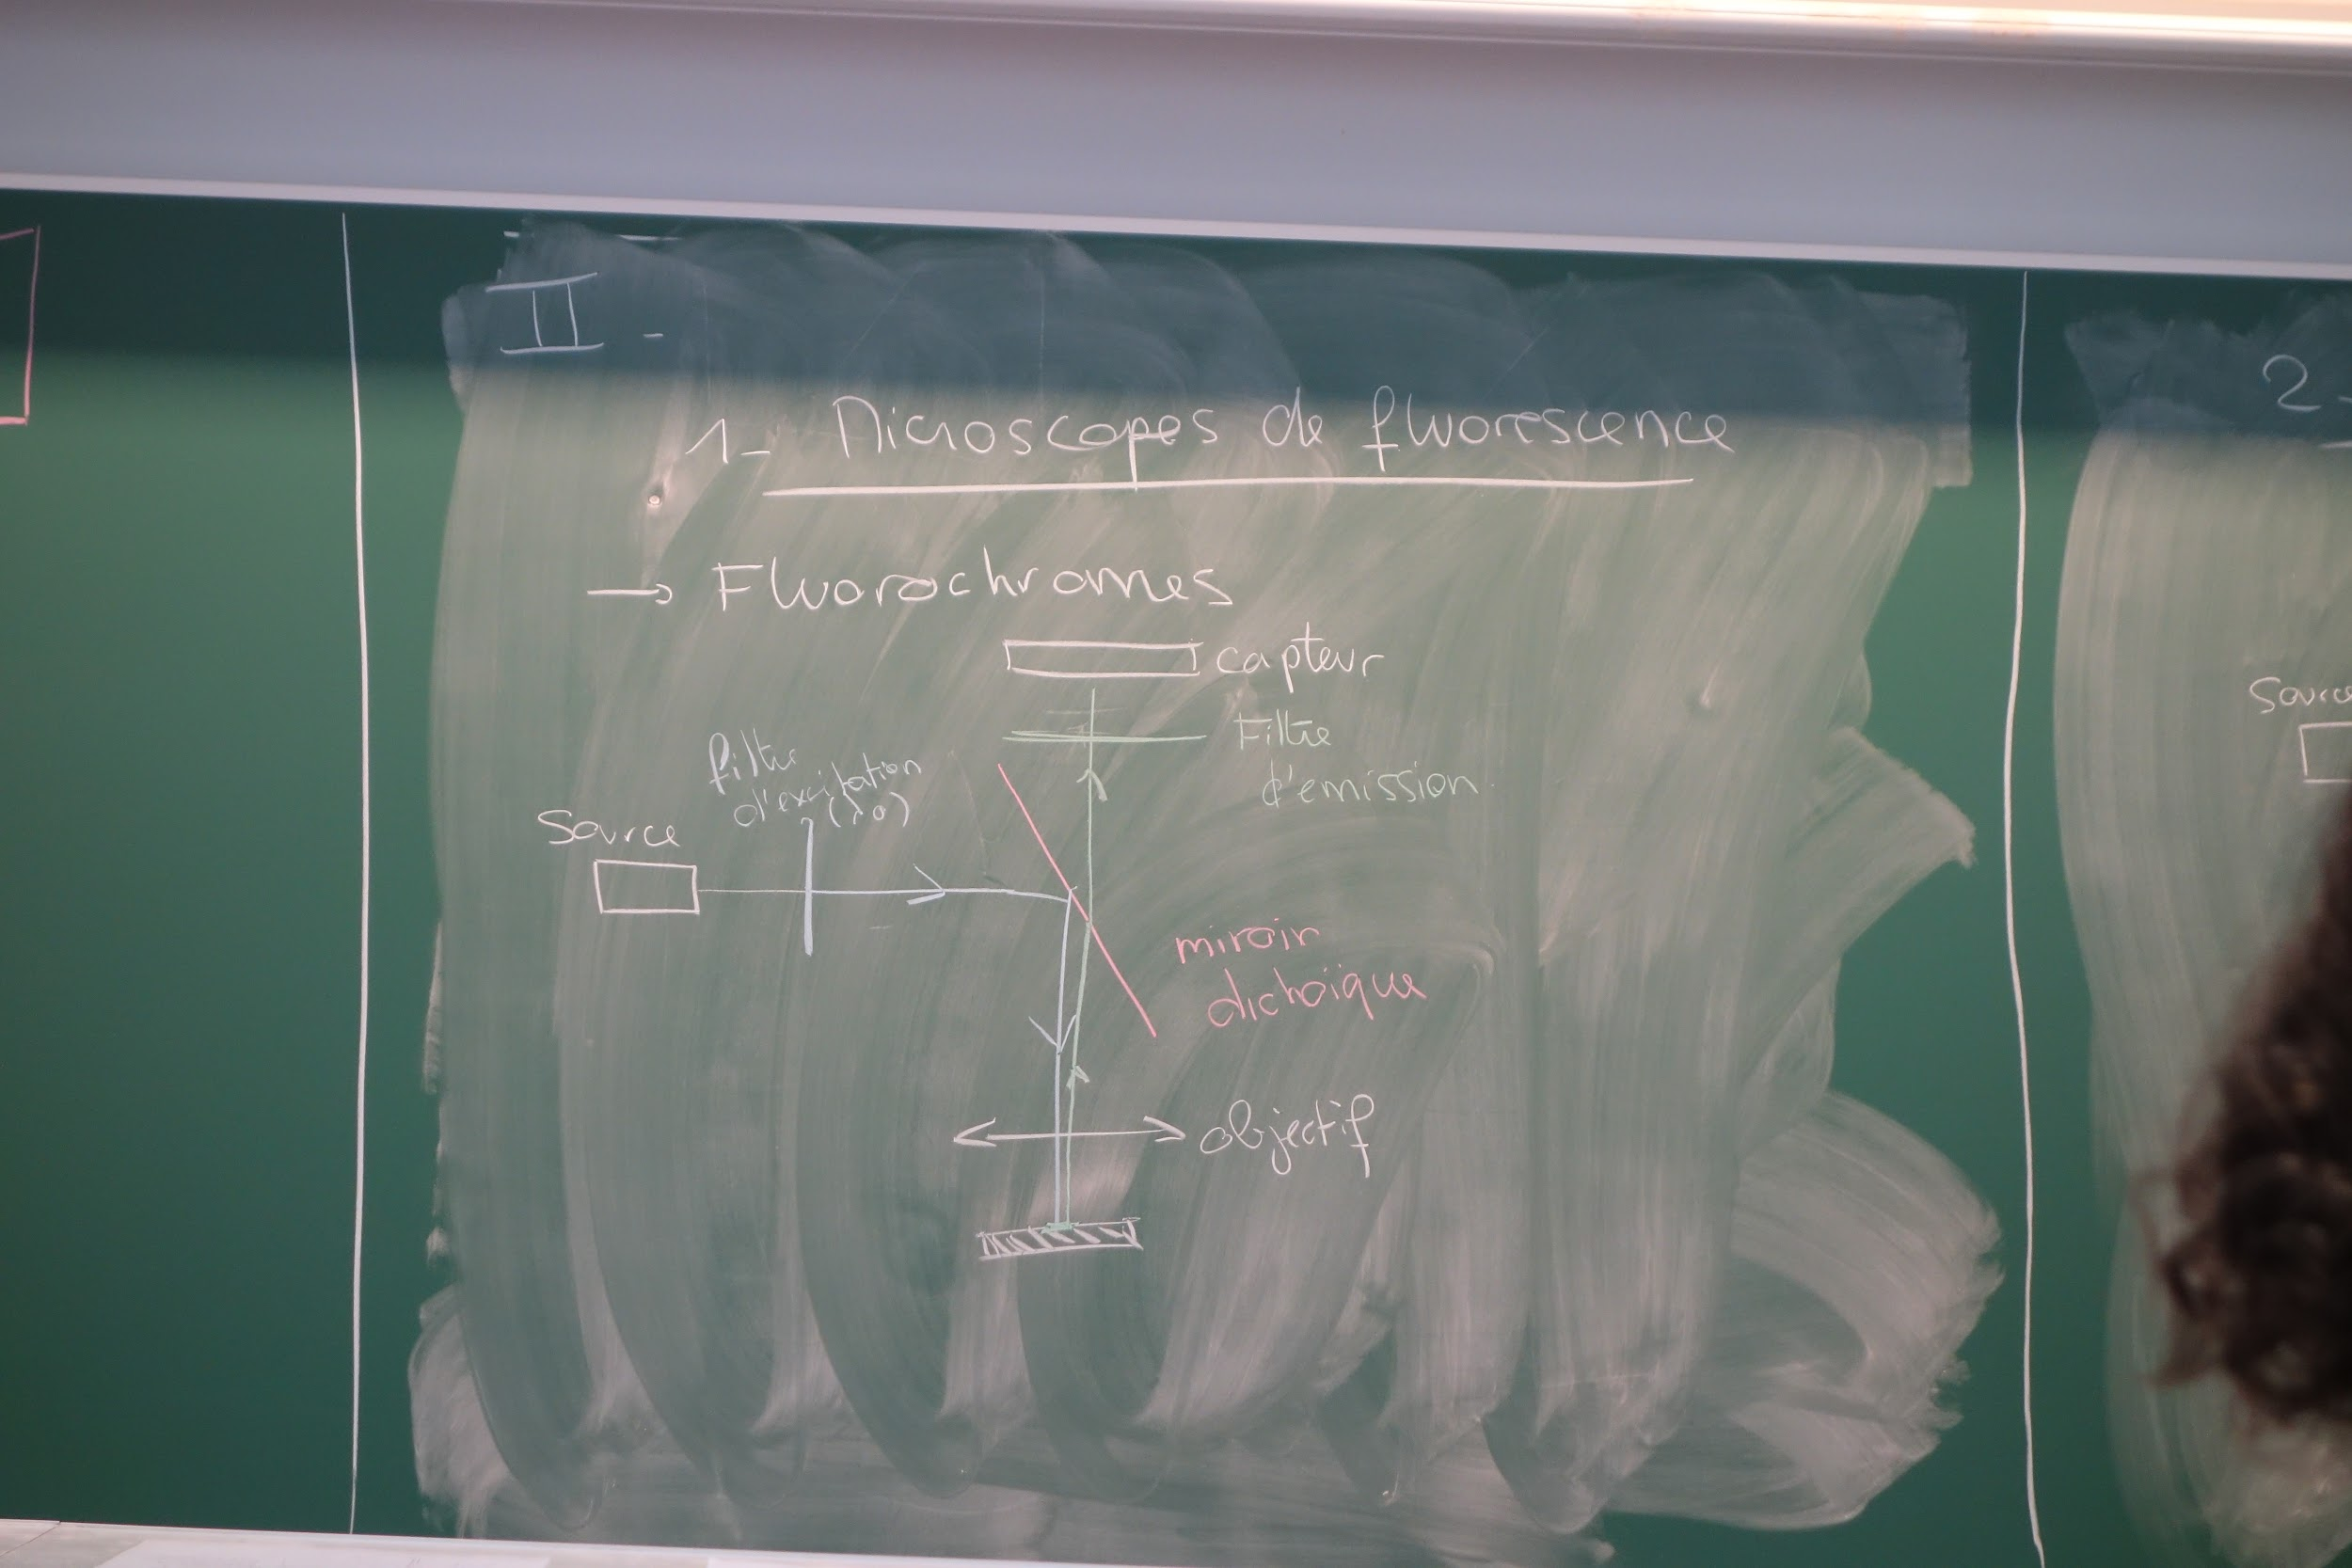 II -
1- Microscopes de fluorescence
→ Fluorochromes
capteur
Filtre
d'émission
filtre
d'excitation
(λ0)
Source
miroir
dichoïque
objectif
2-
Source